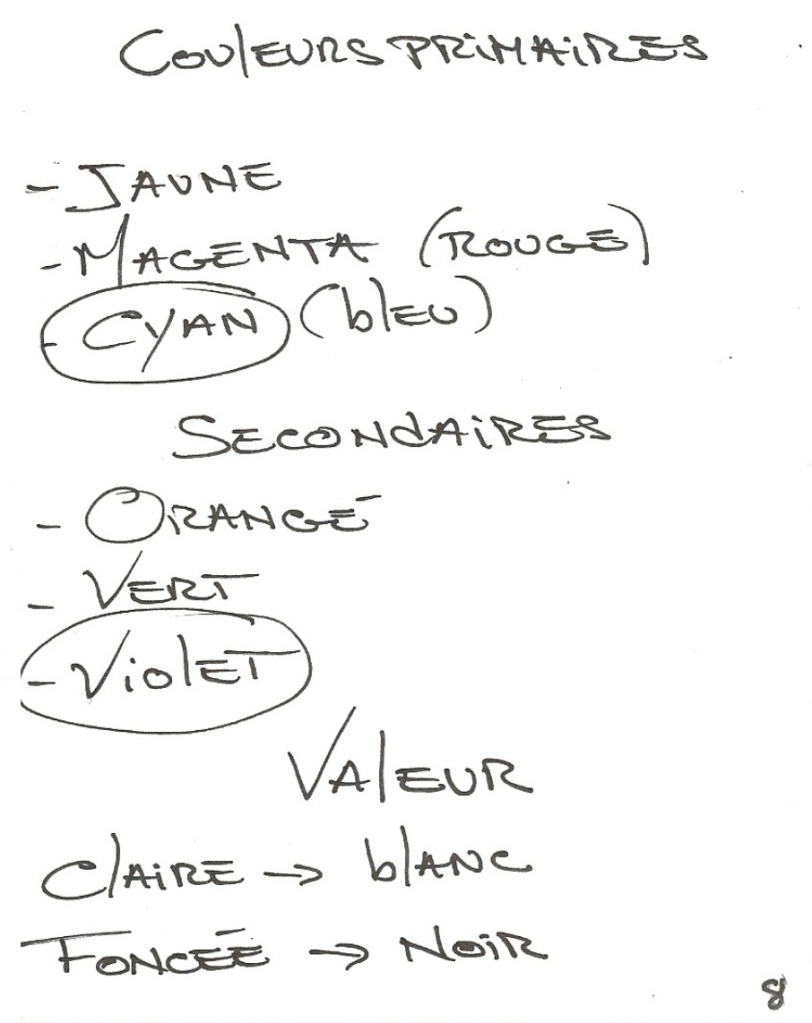 COULEURS PRIMAIRES
- JAUNE
- MAGENTA (ROUGE)
- CYAN (bLEU)
SECONDAIRES
- ORANGÉ
- VERT
- VIOLET
VALEUR
CLAIRE → bLANC
FONCÉE → NOIR
8